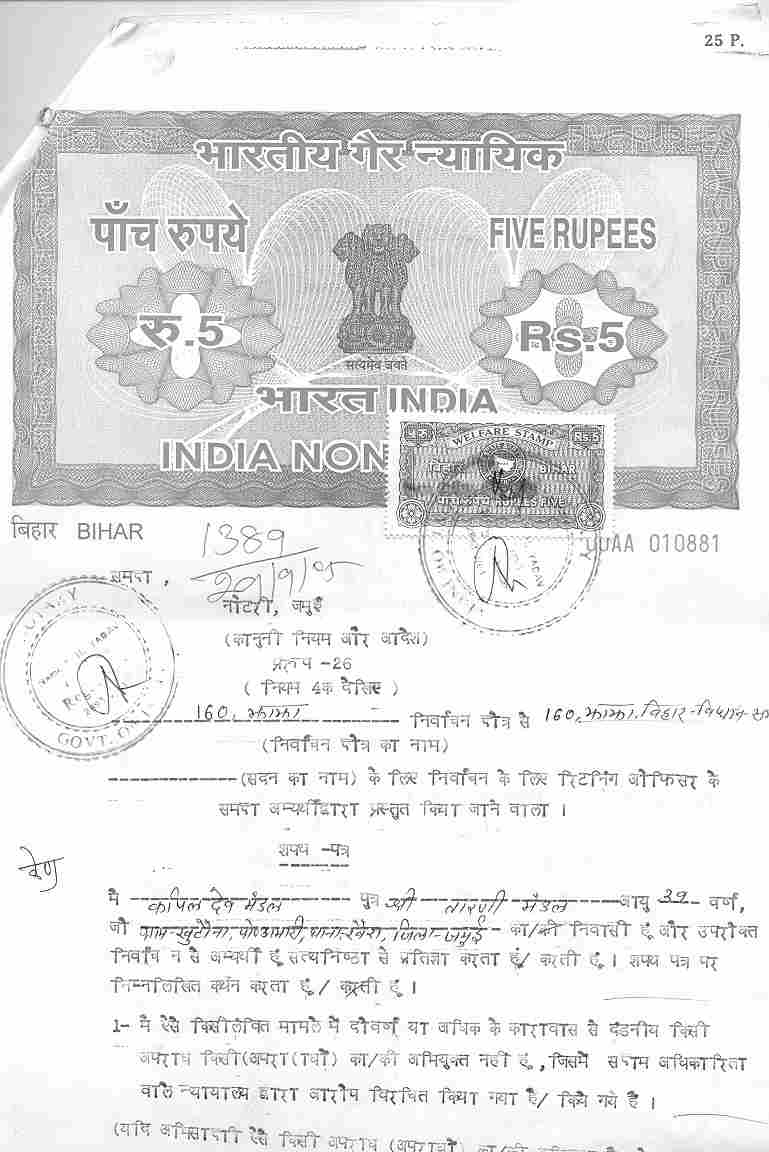 25 P.
भारतीय गैर न्यायिक
पाँच रुपये FIVE RUPEES
रु.5 Rs.5
सत्यमेव जयते
भारत INDIA
INDIA NON
WELFARE STAMP
Rs.5
बिहार BIHAR
RUPEES FIVE
बिहार BIHAR
1389
AA 010881
समदा ,
नोटरी, जमुई
(कानुनी नियम और आदेश)
प्ररुप -26
( नियम 4क देखिए )
160, झाझा निर्वाचन दोत्र से 160, झाझा, बिहार-विधान-स
(निर्वाचन दोत्र का नाम)
(सदन का नाम) के लिए निर्वाचन के लिए रिटर्निंग ऑफिसर के
समदा अभ्यर्थी द्वारा प्रस्तुत किया जाने वाला ।
शपथ -पत्र
मै कपिल देव मंडल पुत्र श्री तारणी मंडल आयु 39 वर्ण,
जो ग्राम-खुटौना, थाना-खैरा, जिला-जमुई का/की निवासी हूं और उपरोक्त
निर्वाच न से अभ्यर्थी हूं सत्यनिष्ठा से प्रतिज्ञा करता हूं/ करती हूं । शपथ पत्र पर
निम्नलिखित कथन करता हूं / करती हूं ।
1- मै ऐसे किसी लंवित मामले में दो वर्ण या अधिक के कारावास से दंडनीय किसी
अपराध किसी(अपरा(धों) का/की अभियुक्त नहीं हूं ,जिसमें सदाम अधिकारिता
वाले न्यायालय द्वारा आरोप विरचित किया गया है/ किये गये है ।
(यदि अभिसादी ऐसे किसी अपराध (अपराधों) का/की
NOTARY
GOVT. OF